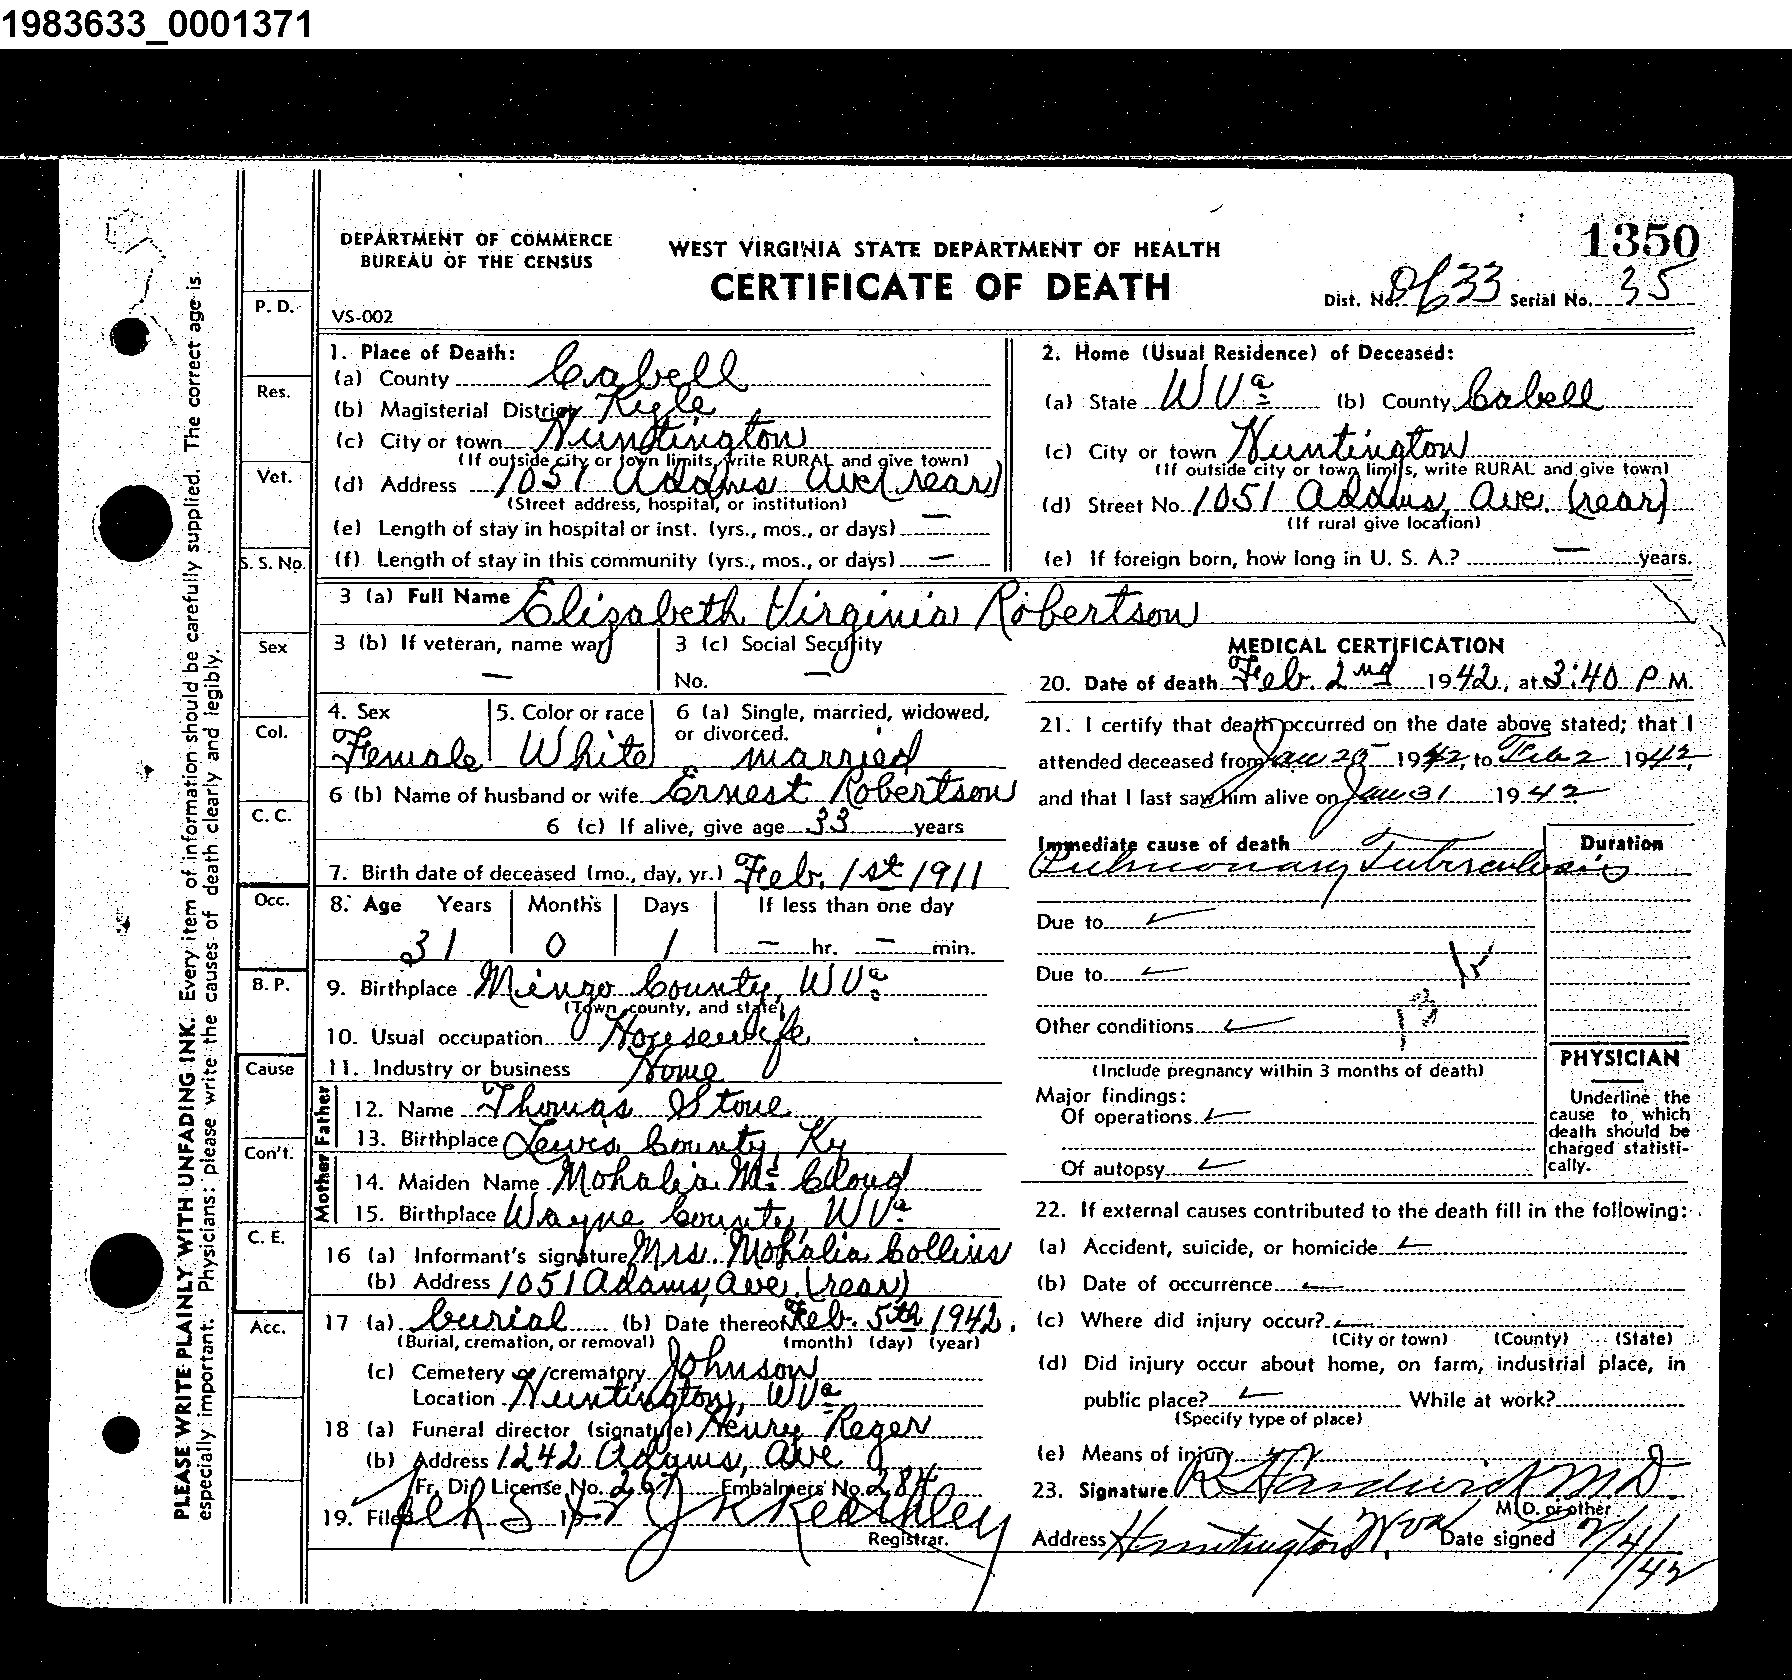 1983633_0001371
DEPARTMENT OF COMMERCE
BUREAU OF THE CENSUS
WEST VIRGINIA STATE DEPARTMENT OF HEALTH
CERTIFICATE OF DEATH
1350
VS-002
Dist. No. Serial No. 35
PLEASE WRITE PLAINLY WITH UNFADING INK. Every item of information should be carefully supplied. The correct age is
especially important. Physicians: please write the causes of death clearly and legibly.
P. D.
Res.
Vet.
S. S. No.
Sex
Col.
C. C.
Occ.
B. P.
Cause
Con't.
C. E.
Acc.
1. Place of Death:
(a) County Cabell
(b) Magisterial District Kyle
(c) City or town Huntington
(If outside city or town limits, write RURAL and give town)
(d) Address 1051 Adams Ave (rear)
(Street address, hospital, or institution)
(e) Length of stay in hospital or inst. (yrs., mos., or days) —
(f) Length of stay in this community (yrs., mos., or days) —
2. Home (Usual Residence) of Deceased:
(a) State W Va (b) County Cabell
(c) City or town Huntington
(If outside city or town limits, write RURAL and give town)
(d) Street No. 1051 Adams, Ave. (rear)
(If rural give location)
(e) If foreign born, how long in U. S. A.? — years.
3 (a) Full Name Elizabeth Virginia Robertson
3 (b) If veteran, name war —
3 (c) Social Security
No. —
4. Sex Female
5. Color or race White
6 (a) Single, married, widowed,
or divorced. married
6 (b) Name of husband or wife Ernest Robertson
6 (c) If alive, give age 33 years
7. Birth date of deceased (mo., day, yr.) Feb. 1st 1911
8. Age Years Months Days If less than one day
31 0 1 — hr. — min.
9. Birthplace Mingo County, W Va
(Town, county, and state)
10. Usual occupation Housewife
11. Industry or business Home
Father
12. Name Thomas Stone
13. Birthplace Lewis County, Ky
Mother
14. Maiden Name Mohalia Mc Cloud
15. Birthplace Wayne County, W Va
16 (a) Informant's signature Mrs. Mohalia Collins
(b) Address 1051 Adams, Ave. (rear)
17 (a) burial (b) Date thereof Feb. 5th 1942.
(Burial, cremation, or removal) (month) (day) (year)
(c) Cemetery or crematory Johnson
Location Huntington, W Va
18 (a) Funeral director (signature) Henry Reger
(b) Address 1242 Adams, Ave
Fr. Dir. License No. 267 Embalmers No. 284
19. Filed Feb 5 1942 J K Keathley
Registrar.
MEDICAL CERTIFICATION
20. Date of death Feb. 2nd 1942, at 3:40 P M.
21. I certify that death occurred on the date above stated; that I
attended deceased from Jan 25 1942, to Feb 2 1942,
and that I last saw him alive on Jan 31 1942
Immediate cause of death Duration
Pulmonary Tuberculosis
Due to
Due to
13
Other conditions
(Include pregnancy within 3 months of death)
Major findings:
Of operations
Of autopsy
PHYSICIAN
Underline the
cause to which
death should be
charged statisti-
cally.
22. If external causes contributed to the death fill in the following:
(a) Accident, suicide, or homicide
(b) Date of occurrence
(c) Where did injury occur?
(City or town) (County) (State)
(d) Did injury occur about home, on farm, industrial place, in
public place? While at work?
(Specify type of place)
(e) Means of injury
23. Signature M D.
M. D. or other
Address Huntington W. Va Date signed 2/4/42